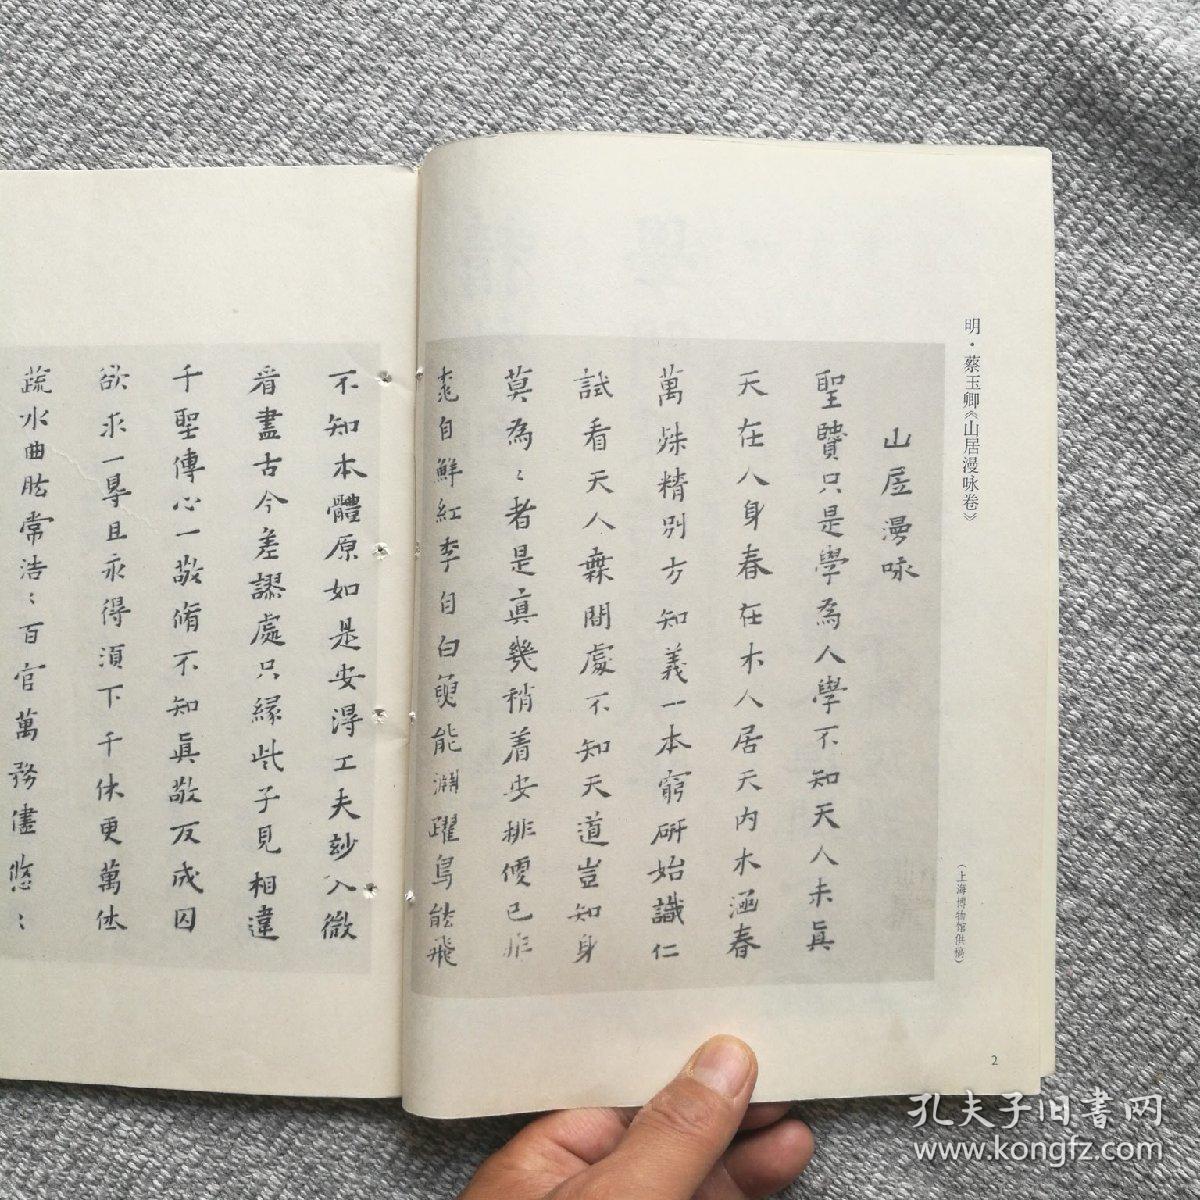 明·蔡玉卿《山居漫咏卷》
(上海博物馆供稿)
山居漫咏
聖賢只是學為人學不知天人未眞
天在人身春在木人居天內木涵春
萬殊精別方知義一本窮研始識仁
試看天人無間處不知天道豈知身
莫為〻者是眞幾稍着安排便已非
桃自鮮紅李自白魚能淵躍鳥能飛
不知本體原如是安得工夫玅入微
看盡古今差謬處只緣此子見相違
千聖傳心一敬脩不知眞敬反成囚
欲求一㝵且永得須下千休更萬休
蔬水曲肱常浩〻百官萬務儘悠〻
2
孔夫子旧书网
www.kongfz.com